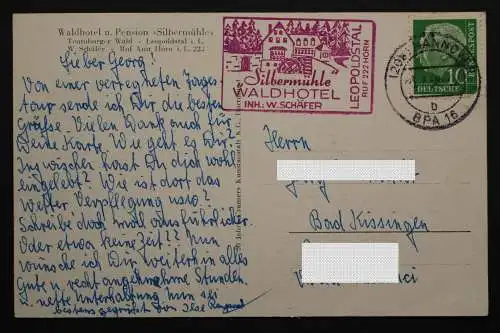 Waldhotel u. Pension «Silbermühle»
Teutoburger Wald - Leopoldstal i. L.
W. Schäfer Ruf Amt Horn i. L. 222
Lieber Georg!
Von einer verregneten Tages-
tour sende ich Dir die besten
Grüße. Vielen Dank auch für
Deine Karte. Wie geht es Dir?
Inzwischen hast Du Dich wohl
eingelebt? Wie ist dort das
Wetter, Verpflegung usw?
Schreibe doch mal ausführlicher.
Oder etwa keine Zeit!? Nun
wünsche ich Dir weiterhin alles
Gute u. recht angenehme Stunden.
U. nette Unterhaltung. Nun sei
bestens gegrüßt von Ilse
"Silbermühle"
WALDHOTEL
INH.: W. SCHÄFER
LEOPOLDSTAL
RUF 222 HORN
HANNOVER
b
BPA 16
10
DEUTSCHE
Herrn
Bad Kissingen